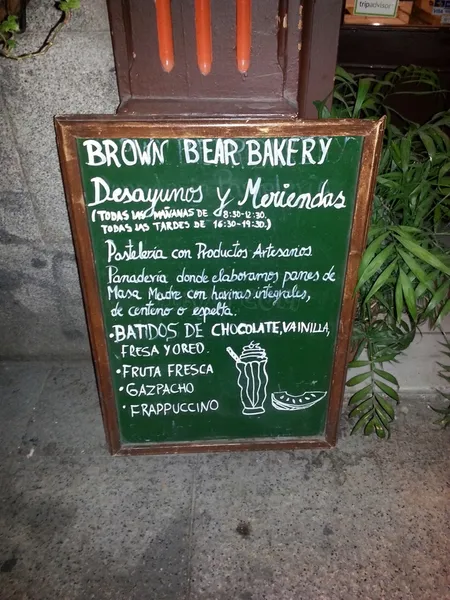 tripadvisor
BROWN BEAR BAKERY
Desayunos y Meriendas
(TODAS LAS MAÑANAS DE 8:30-12:30.
TODAS LAS TARDES DE 16:30-19:30.)
Pastelería con Productos Artesanos
Panadería donde elaboramos panes de
Masa Madre con harinas integrales,
de centeno o espelta.
•BATIDOS DE CHOCOLATE, VAINILLA,
FRESA Y OREO.
•FRUTA FRESCA
•GAZPACHO
•FRAPPUCCINO